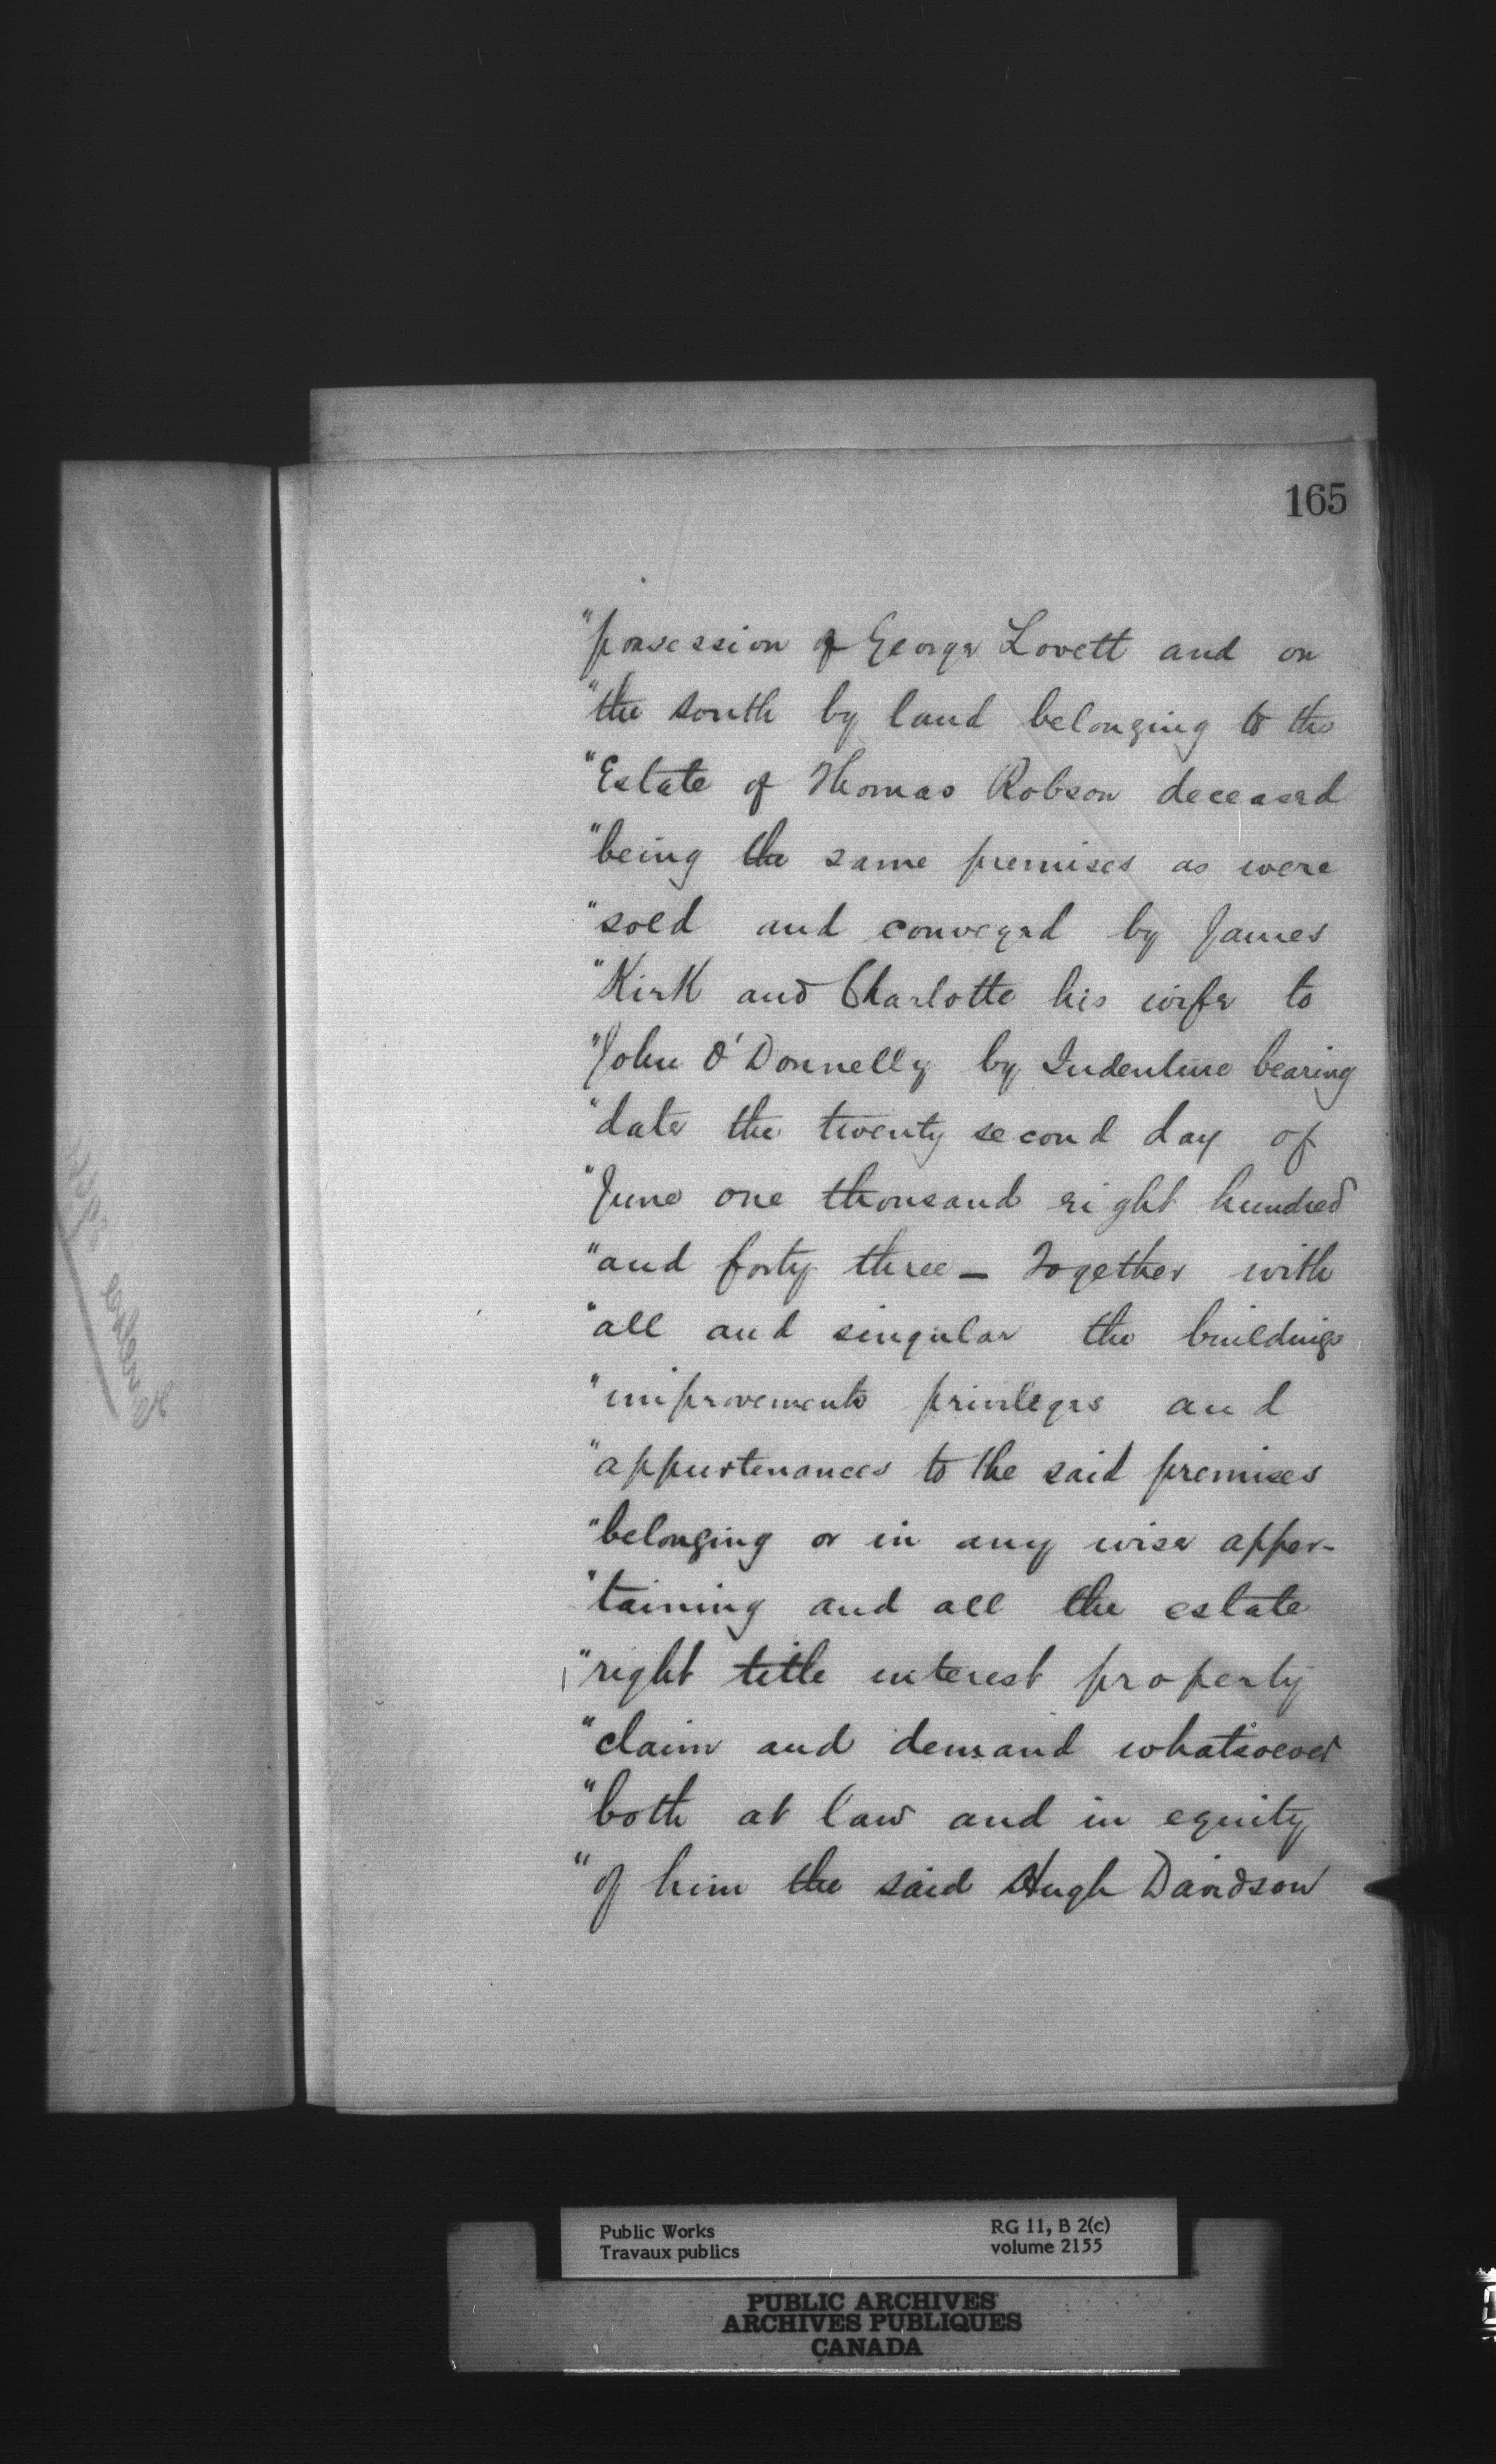 165
"possession of George Lovett and on
"the south by land belonging to the
"Estate of Thomas Robson deceased
"being the same premises as were
"sold and conveyed by James
"Kirk and Charlotte his wife to
"John O'Donnelly by Indenture bearing
"date the twenty second day of
"June one thousand eight hundred
"and forty three – Together with
"all and singular the buildings
"improvements privileges and
"appurtenances to the said premises
"belonging or in any wise apper-
"taining and all the estate
"right title interest property
"claim and demand whatsoever
"both at law and in equity
"of him the said Hugh Davidson
Public Works
Travaux publics
RG 11, B 2(c)
volume 2155
PUBLIC ARCHIVES
ARCHIVES PUBLIQUES
CANADA